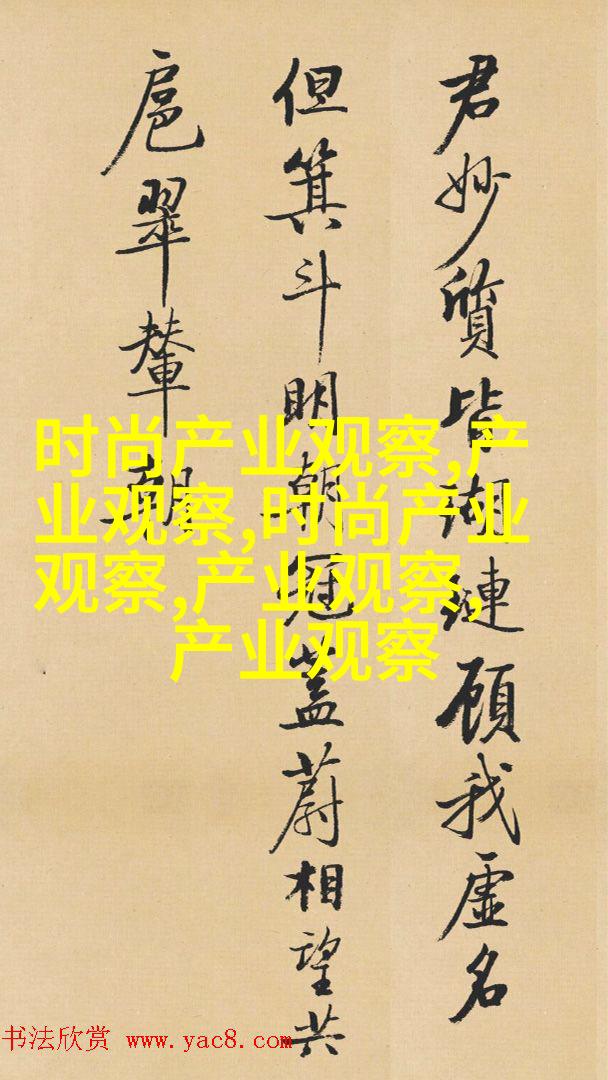 君妙質皆瑚璉顧我虛名
但箕斗明朝冠蓋蔚相望共
扈翠輦朝
时尚产业观察,产
业观察,时尚产业
观察,产业观察,
产业观察
书法欣赏 www.yac8.com